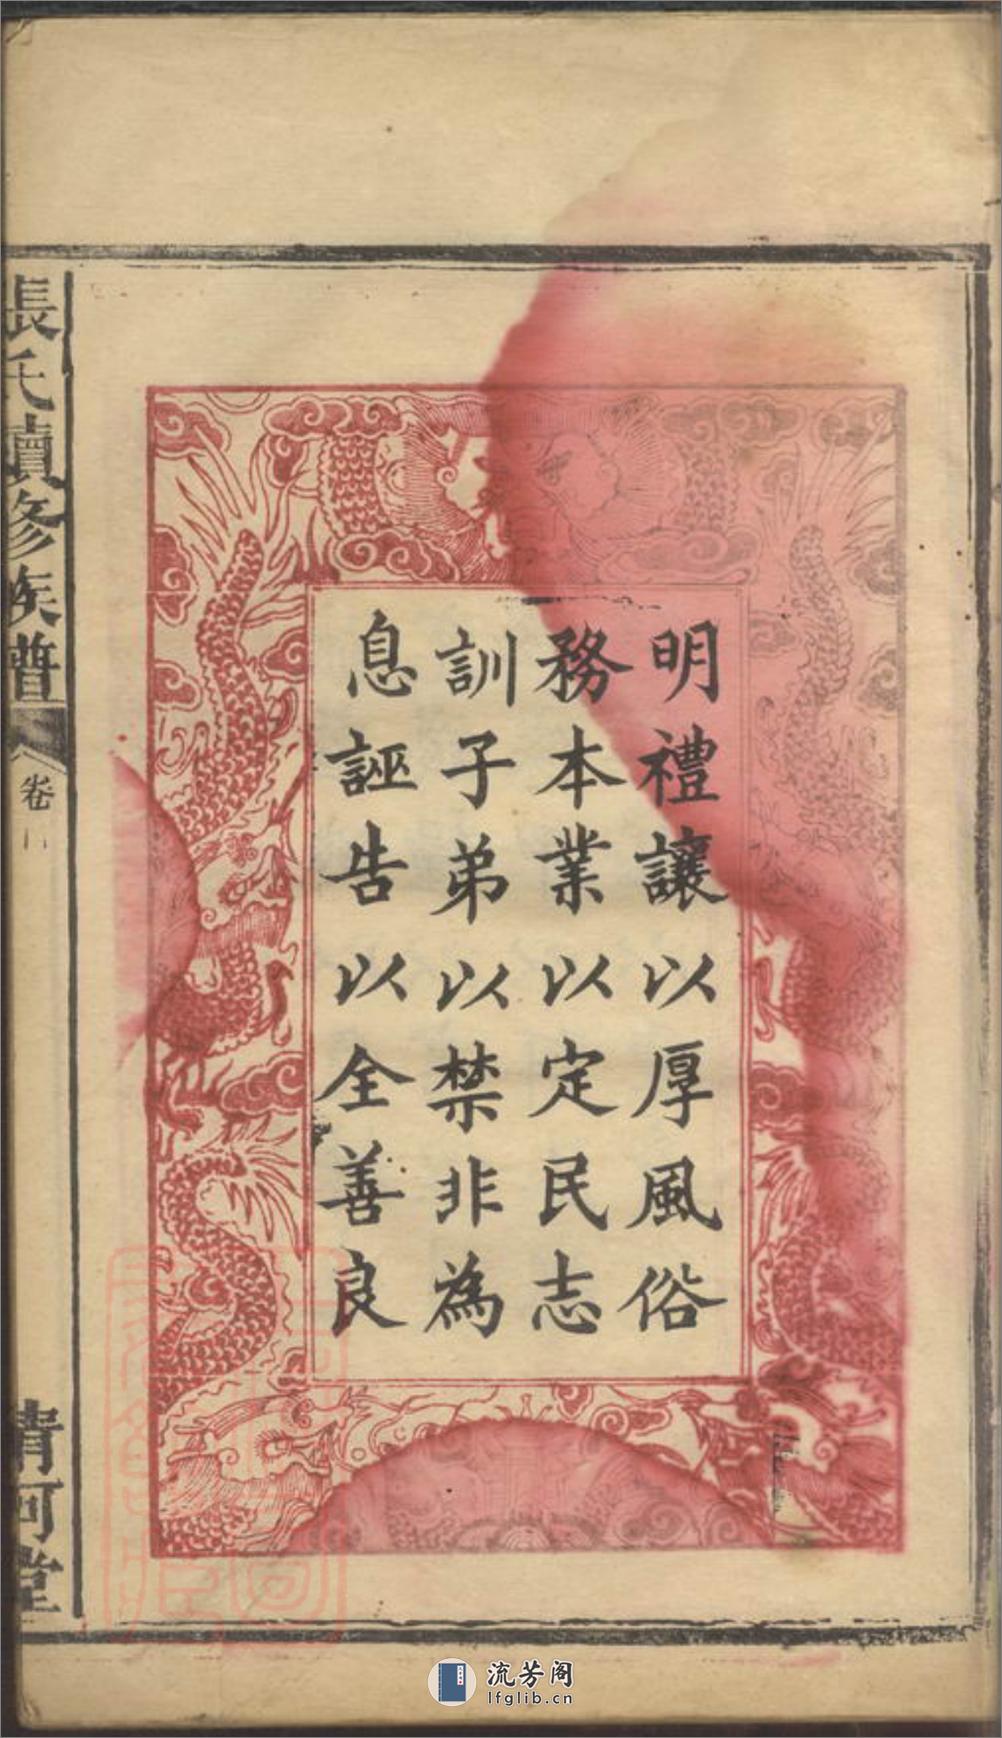 明禮讓以厚風俗
務本業以定民志
訓子弟以禁非為
息誣告以全善良
張氏續修族譜
卷
清河堂
流芳阁
lfglib.cn